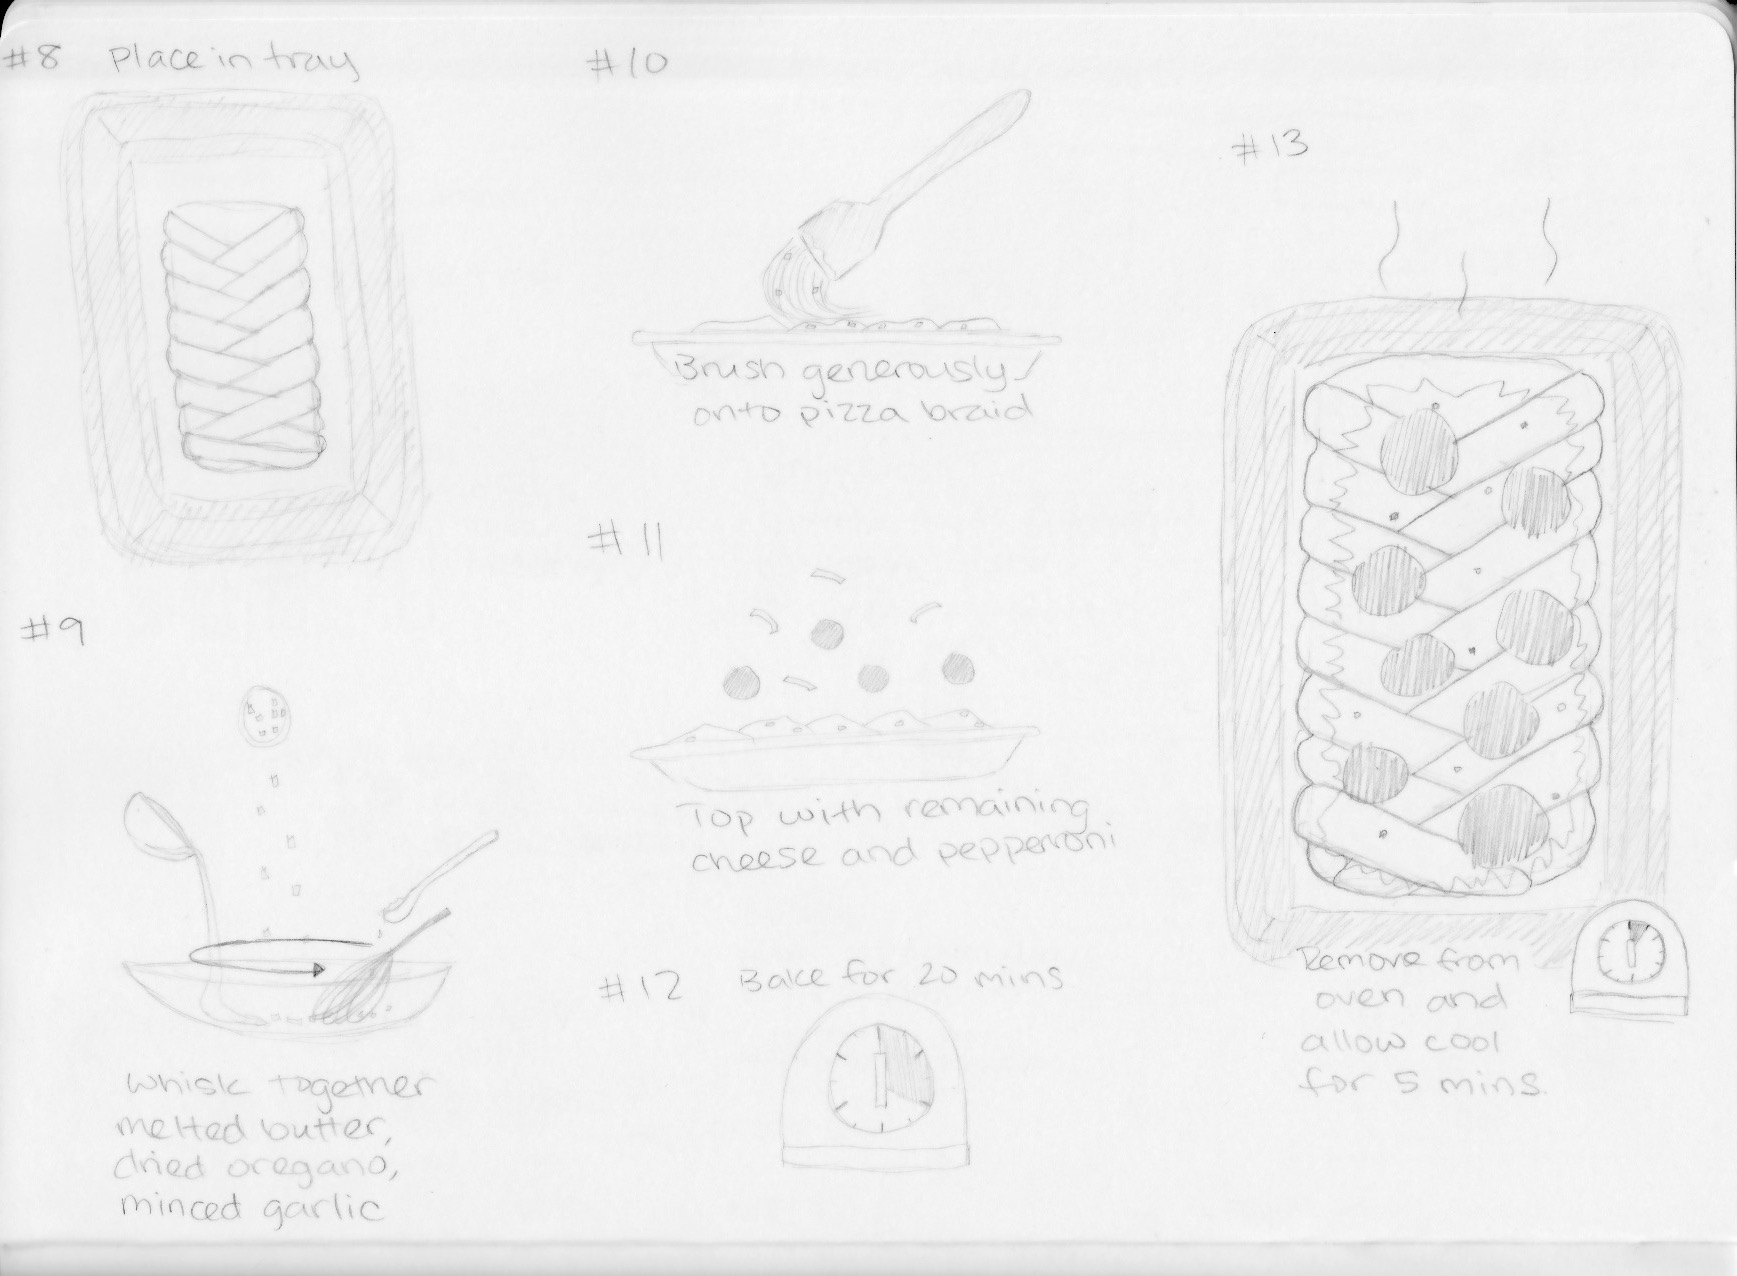 #8 Place in tray
#9
Whisk together
melted butter,
dried oregano,
minced garlic
#10
Brush generously
onto pizza braid
#11
Top with remaining
cheese and pepperoni
#12 Bake for 20 mins
#13
Remove from
oven and
allow cool
for 5 mins.